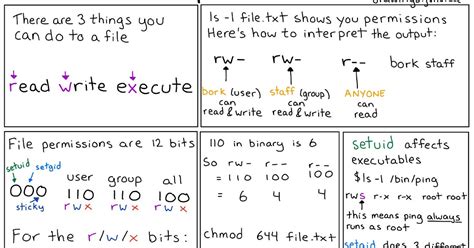 There are 3 things you
can do to a file
read write execute
ls -l file.txt shows you permissions
Here's how to interpret the output:
rw- rw- r-- bork staff
bork (user) staff (group) ANYONE
can can can
read & write read & write read
File permissions are 12 bits
setuid setgid
user group all
000 110 110 100
sticky rwx rwx rwx
For the r/w/x bits:
110 in binary is 6
So rw- r-- r--
= 110 100 100
= 6 4 4
chmod 644 file.txt
setuid affects
executables
$ls -l /bin/ping
rws r-x r-x root root
this means ping always
runs as root